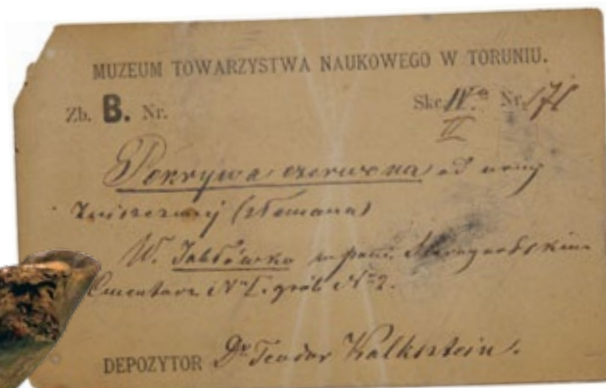 MUZEUM TOWARZYSTWA NAUKOWEGO W TORUNIU.
Zb. B. Nr. Skr. IV.a Nr. 171
II
Pokrywa czerwona od urny
zniszczonej (złomana)
W. Jabłówko w pow. Starogardzkim
Cmentarz No I. grób No 2.
DEPOZYTOR Dr Teodor Kalkstein.